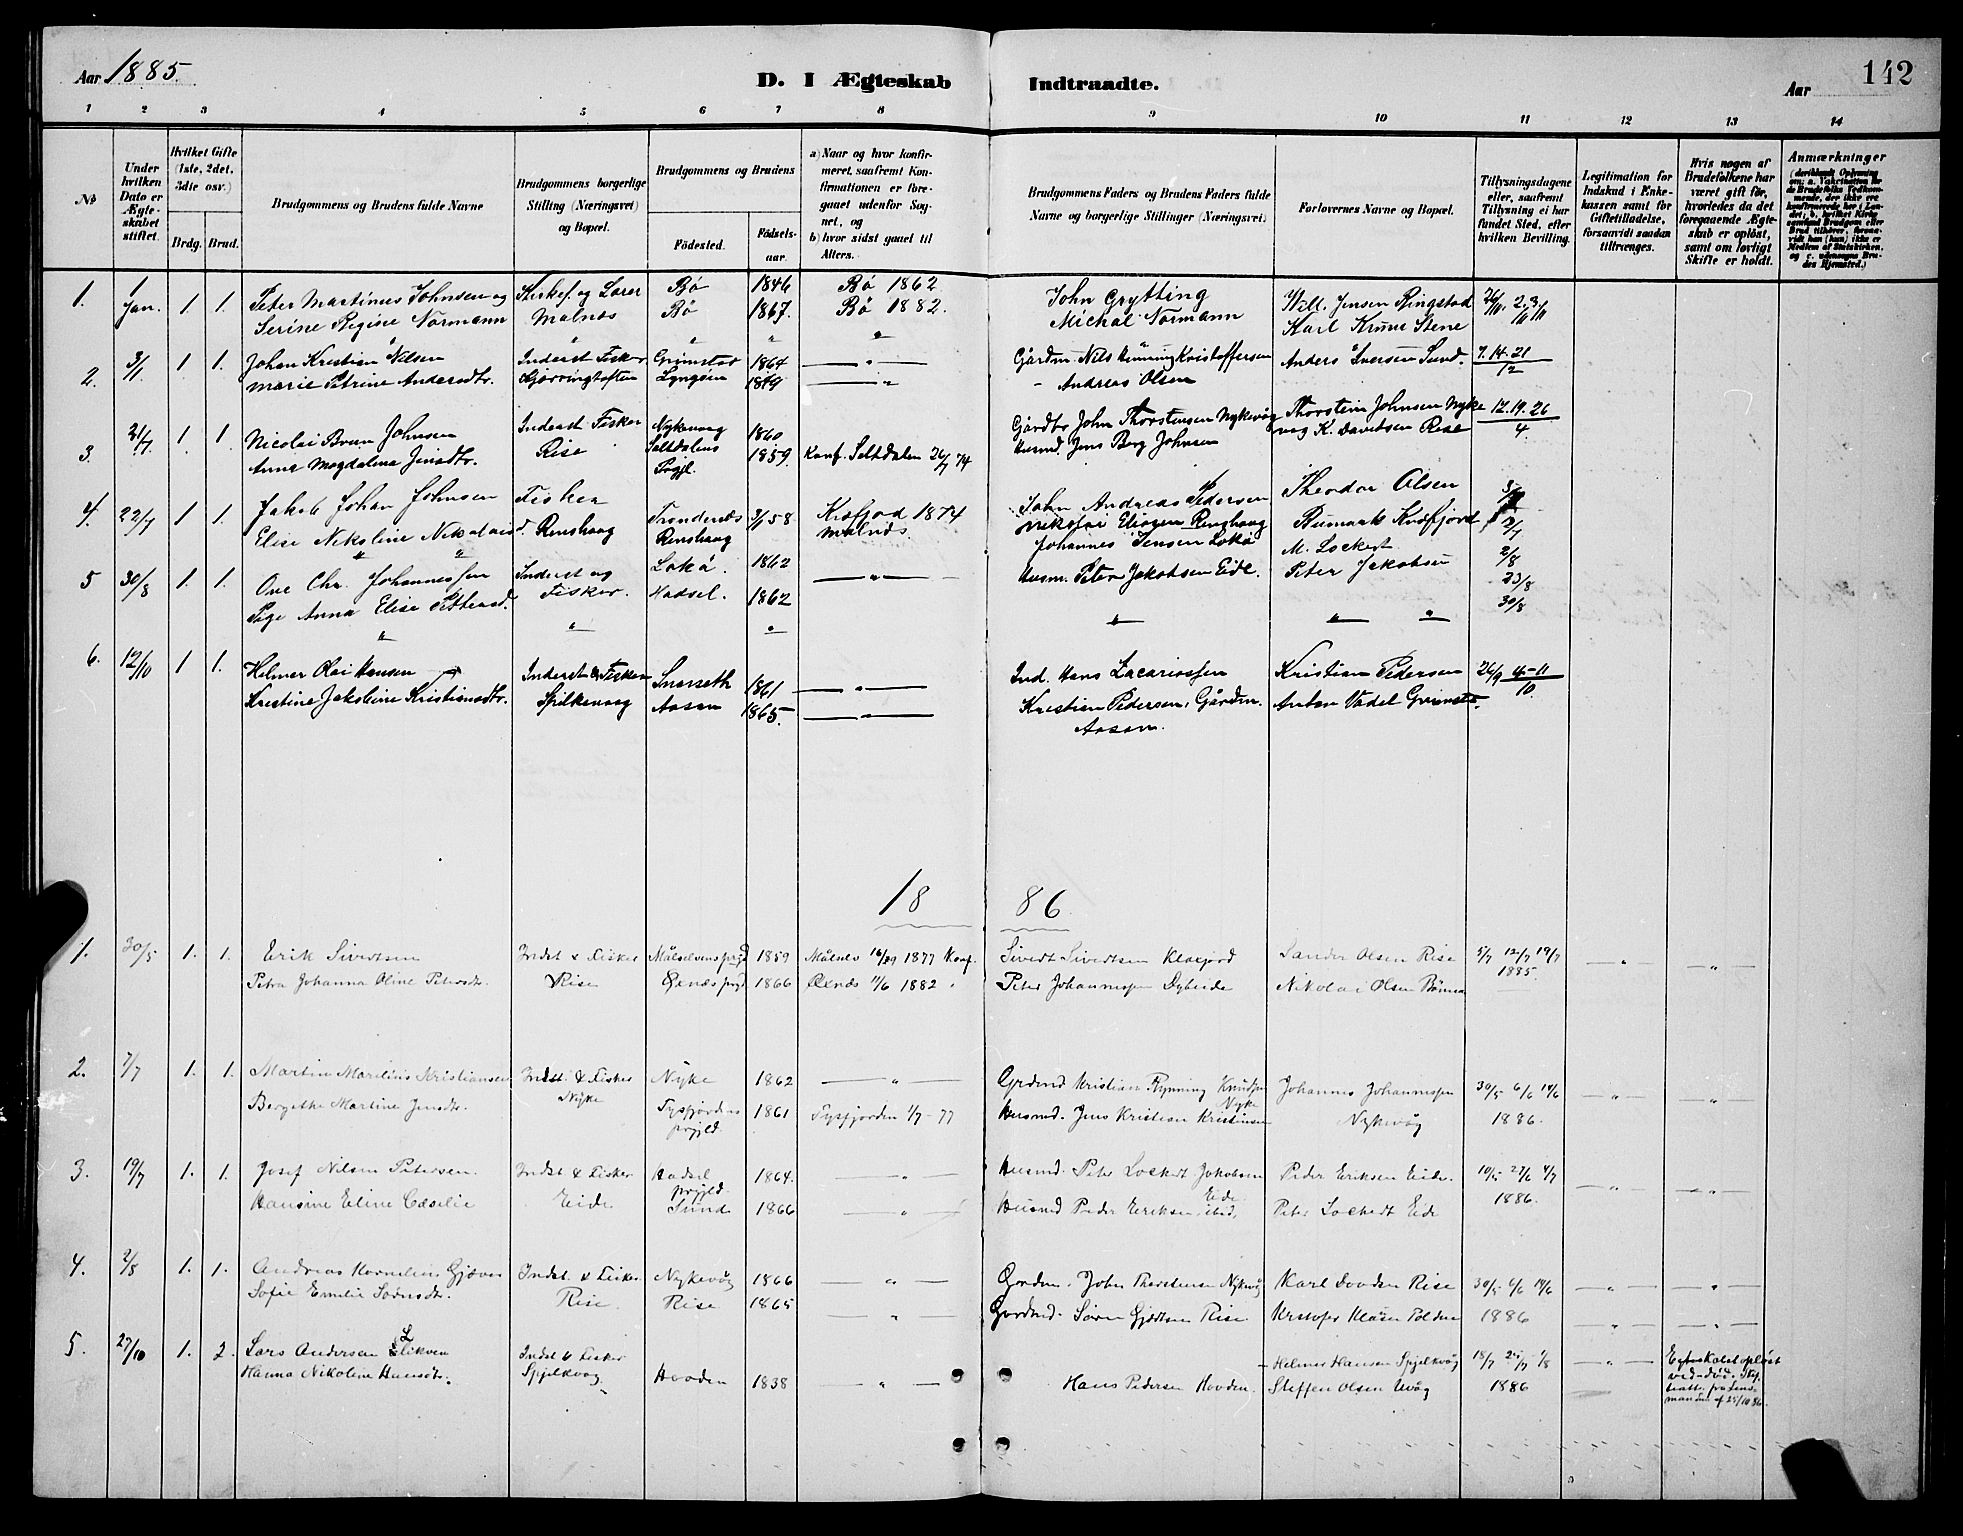 Aar 1885.
D. I Ægteskab Indtraadte.
Aar
142
1 2 3 4 5 6 7 8 9 10 11 12 13 14
No
Under hvilken Dato er Ægteskabet stiftet.
Hvilket Gifte (1ste, 2det, 3die osv.)
Brdg. Brud.
Brudgommens og Brudens fulde Navne
Brudgommens borgerlige Stilling (Næringsvei) og Bopæl.
Brudgommens og Brudens
Fødested. Fødselsaar.
a) Naar og hvor konfirmeret, saafremt Konfirmationen er foregaaet udenfor Sognet, og
b) hvor sidst gaaet til Alters.
Brudgommens Faders og Brudens Faders fulde Navne og borgerlige Stillinger (Næringsvei)
Forlovernes Navne og Bopæl.
Tillysningsdagene eller, saafremt Tillysning ei har fundet Sted, efter hvilken Bevilling.
Legitimation for Indskud i Enkekassen samt for Giftetilladelse, forsaavidt saadan tiltrænges.
Hvis nogen af Brudefolkene har været gift før, hvorledes da det foregaaende Ægteskab er opløst, samt om lovligt Skifte er holdt.
Anmærkninger
1. 1 Jan. 1 1. Peter Martinus Johnsen og Kirkes. og Lærer Bø 1846 Bø 1862 John Grytting Will. Jensen Ringstad
Serine Regine Normann Malnæs Bø 1867. Bø 1882. Michal Normann Karl Knuus Stene
2. 3/1 1 1. Johan Kristian Nilsen Inderst Fisker Grimstad 1864 — " — Gårdm. Nils Henning Kristoffersen Anders Iversen Sund. 7. 14. 21
Marie Petrine Andersdtr. Lyngøen — " — Andreas Olsen 12
3. 21/7 1. 1. Nicolai Bruun Johnsen Inderst Fisker Nykevaag 1860 Gårdbr. John Thorstensen Nykevåg Thorstein Johnsen Nyke 12. 19. 26
Anna Magdalena Jensdtr. Rise Saltdalens Prgjl. 1859. Konf. Saltdalen 26/7 74 Husmd. Jens Berg Johnsen vaag K. Davidsen Rise 4.
4. 22/7 1 1. Jakob Johan Johnsen Fisker Trondenæs 58 Kvæfjord 1874 John Andreas Pedersen Theodor Olsen
Elise Nikoline Nikolaisd. Renshaug Renshaug Malnæs. Nikolai Eliasen Renshaug Kvæfjord 2/7
5 30/8 1. 1. Ove Chr. Johannessen Inderst og Lokø. 1862 — " — Johannes Jensen Lokø M. Lockert 2/8
Pige Anna Elise Pettersd. Fisker. Hadsel. 1862 Husm. Peter Jakobsen Eide. Peter Jakobsen 23/8
30/8
6. 12/10 1 1. Helmer Olai Hansen Inderst & Fisker 1861 — " — Ind. Hans Zacariassen Kristian Pedersen 26/9 4-11
Kristine Jakobine Kristiansdtr. Spilkevaag Aasen 1865. — " — Kristian Pedersen, Gårdm. Anton Vadel Grimst. 10.
Aasen.
18 86
1. 30/5 1. 1. Erik Sivertsen Indst & Fisker Målselvens prgd 1859 Målselv 1877 Konf. Sivert Sivertsen Klæfjord Sander Olsen Rise 5/7 12/7 19/7
Petra Johanna Oline Petersdtr. Rise Øxnæs prgd 1866 Øxnæs 11/6 1882 " Peter Johannessen Dybeide Nikolai Olsen 1885.
2. 7/7 1. 1. Martin Marelius Kristiansen Indst. & Fisker Nyke 1862 — " — Grdmd Kristian Flynning Knudsen Johannes Johannessen 30/5 6/6 14/6
Bergithe Martine Jensdtr. Nyke Tysfjordens prgjld. 1861 Tysfjorden 1/7-77 Nyke
Husmd. Jens Kristian Kristensen Nykevåg 1886.
3. 19/7 1. 1. Josef Nilsen Petersen. Indst & Fisker Hadsel prgjld. 1864. — " — Husmd. Peter Lockert Jakobsen Peder Eriksen Eide. 27/6 4/7
Hansine Eline Cæselie Eide Sund 1866 — " — Eide.
Husmd Peder Eriksen ibid. Peter Lockert Eide 1886.
4. 2/8 1. 1. Andreas Kornelius Gjæver Indst. & Fisker Nykevåg 1866 — " — Grdm. John Thorstensen Nykevåg Karl Davidsen Rise 30/5 6/6 14/6
Sofie Emelie Sørensdtr. Rise. Rise 1865 — " — Gordmd. Søren Gjertsen Rise. Kristofer Klausen Polden 1886
5. 27/10 1. 2. Lars Andersen Likven Indst & Fisker — Helmer Hansen Spjelkvåg 18/7 25/7 1/8
Hanna Nikoline Hansdtr. Spjelkvåg Hovden 1838 — " — Hans Pedersen Hovden. Steffen Olsen Uvåg 1886
Egteskabet opløst ved død. Skifteatt. fra Lensmanden af 25/10 86.